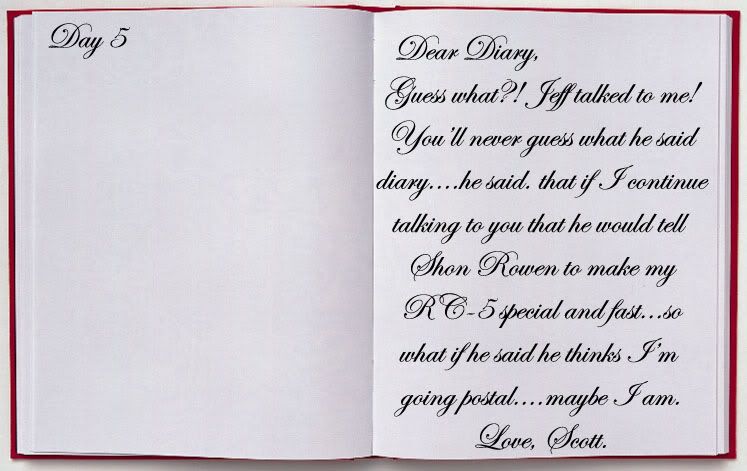 Day 5
Dear Diary,
Guess what?! Jeff talked to me!
You'll never guess what he said
diary....he said. that if I continue
talking to you that he would tell
Shon Rowen to make my
RC-5 special and fast...so
what if he said he thinks I'm
going postal....maybe I am.
Love, Scott.